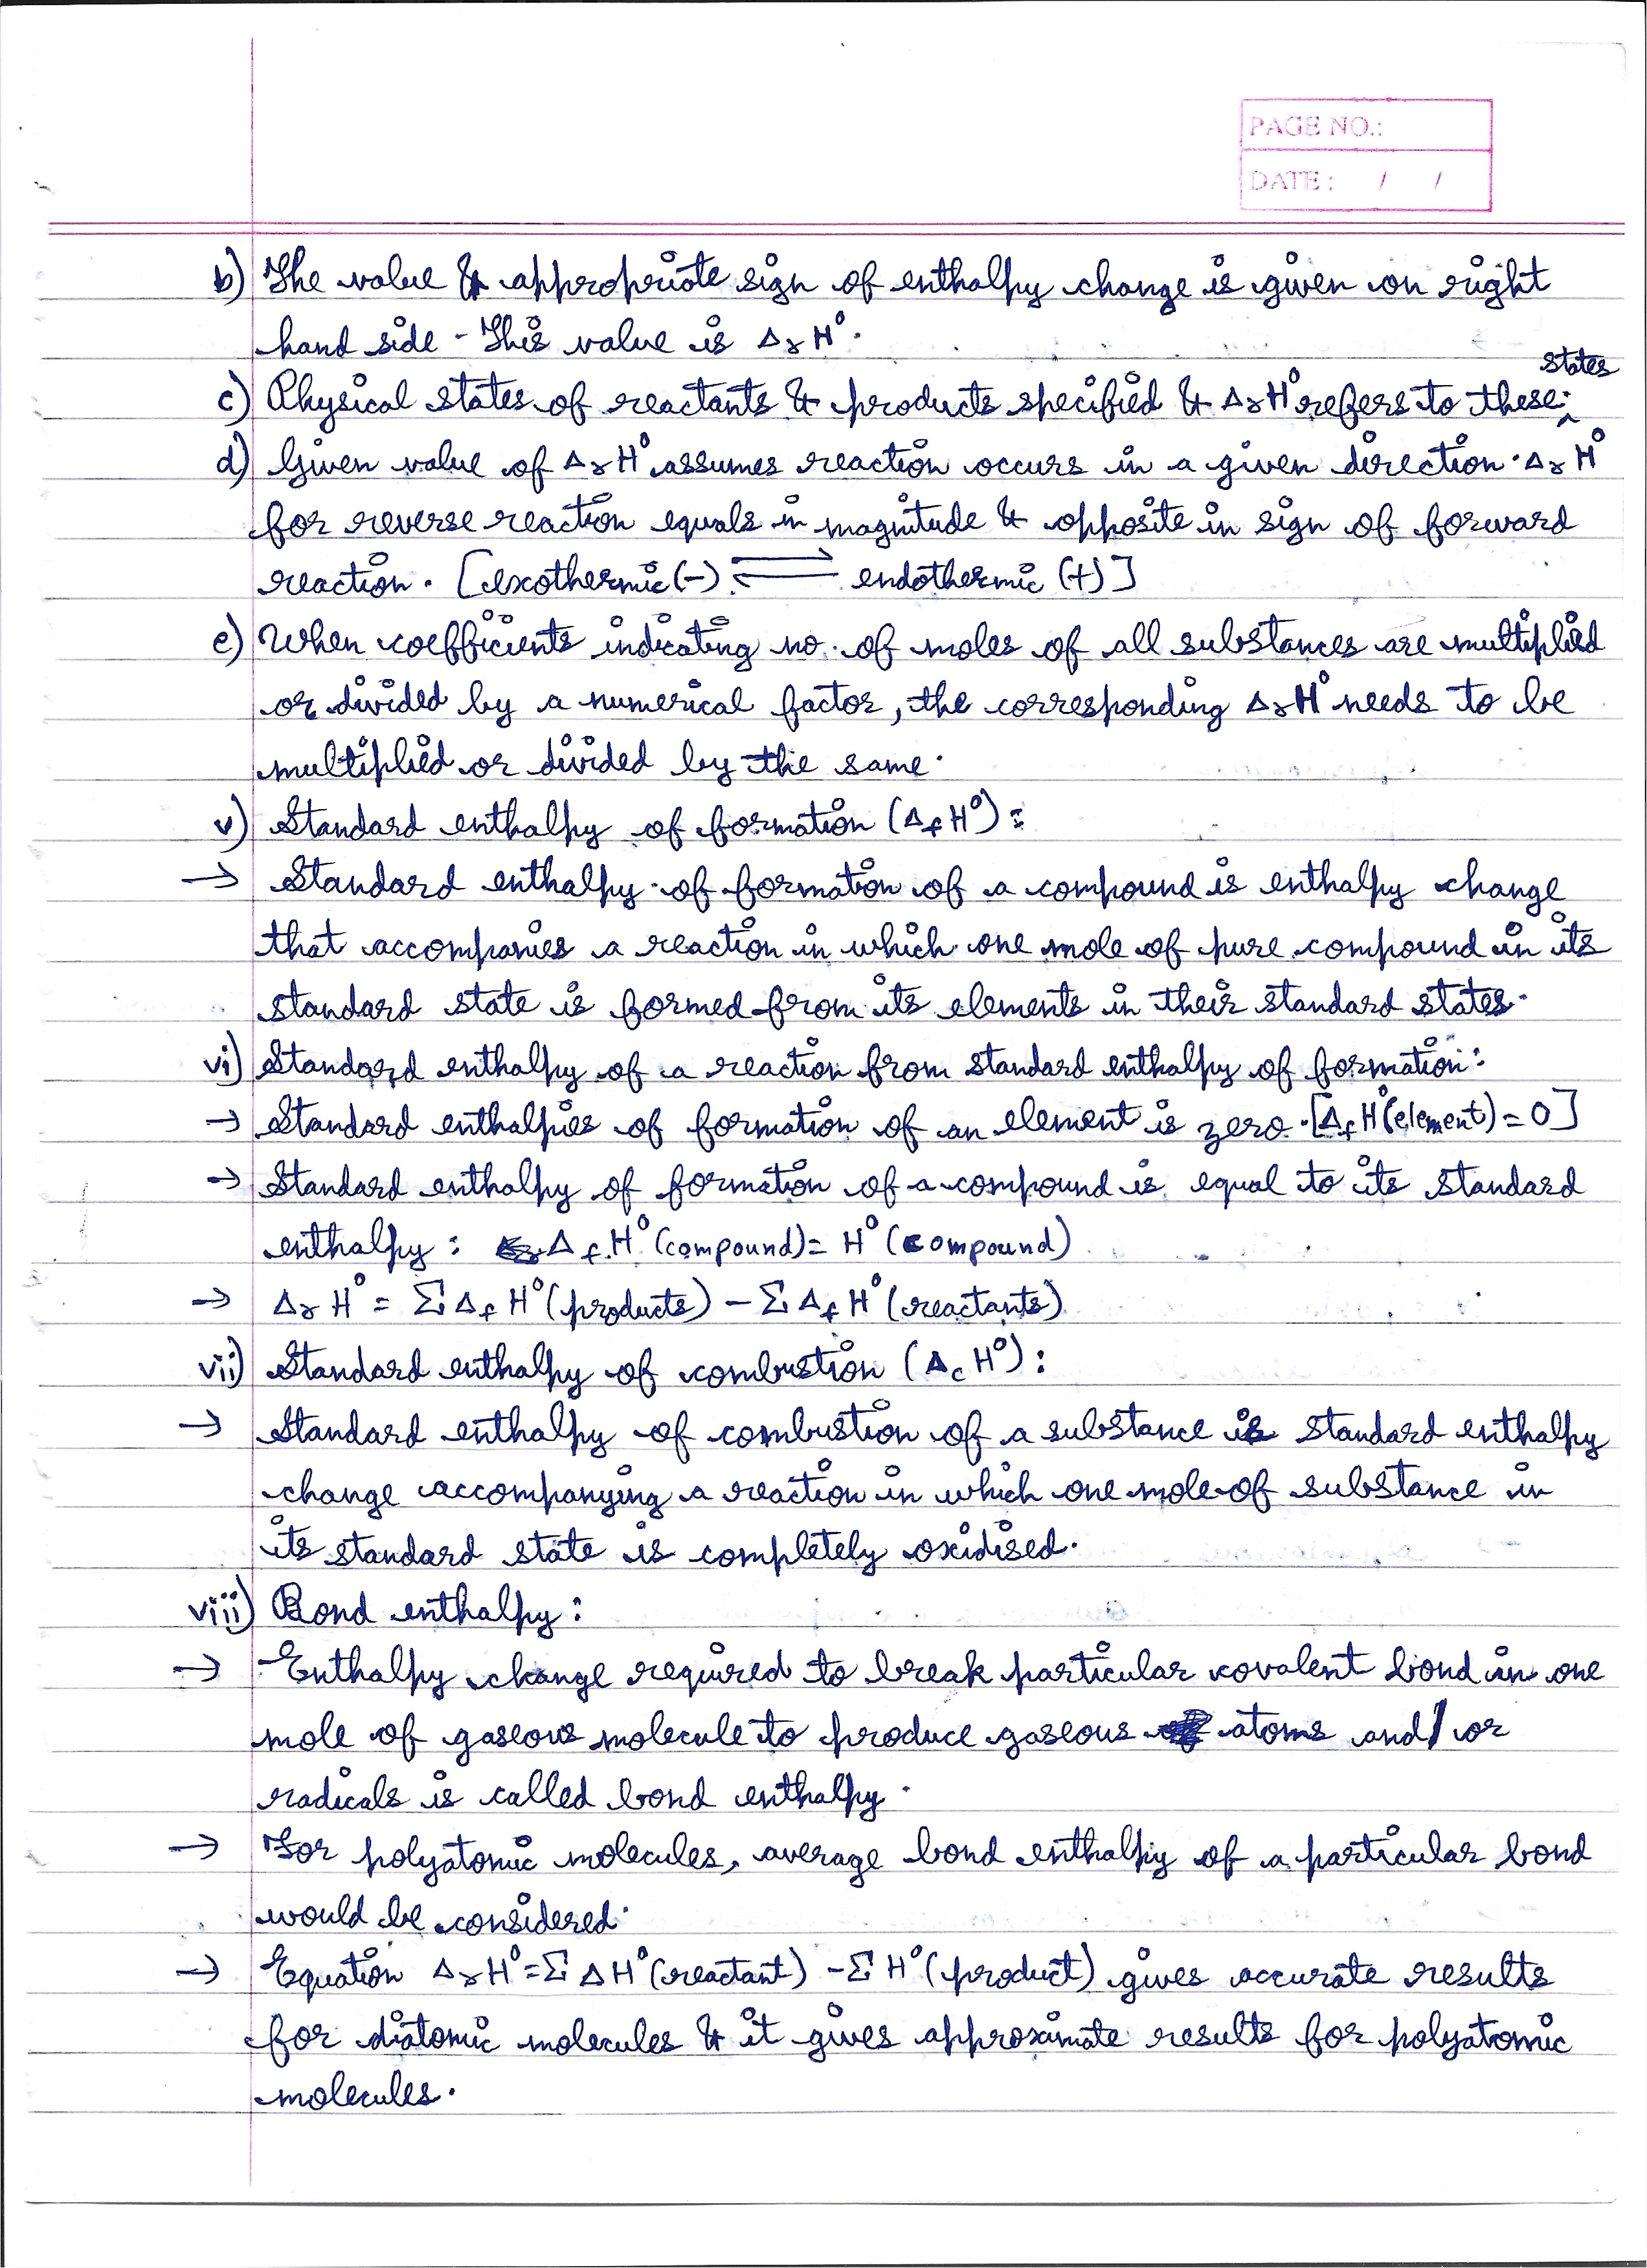 PAGE NO.:
DATE: / /
b) The value & appropriate sign of enthalpy change is given on right
hand side. This value is ΔrH°.
states
c) Physical states of reactants & products specified & ΔrH° refers to these.
d) Given value of ΔrH° assumes reaction occurs in a given direction. ΔrH°
for reverse reaction equals in magnitude & opposite in sign of forward
reaction. [exothermic (-) ⇌ endothermic (+)]
e) When coefficients indicating no. of moles of all substances are multiplied
or divided by a numerical factor, the corresponding ΔrH° needs to be
multiplied or divided by the same.
v) Standard enthalpy of formation (ΔfH°):
→ Standard enthalpy of formation of a compound is enthalpy change
that accompanies a reaction in which one mole of pure compound in its
standard state is formed from its elements in their standard states.
vi) Standard enthalpy of a reaction from standard enthalpy of formation:
→ Standard enthalpies of formation of an element is zero. [ΔfH°(element) = 0]
→ Standard enthalpy of formation of a compound is equal to its standard
enthalpy: ΔfH°(compound) = H°(compound)
→ ΔrH° = Σ ΔfH°(products) - Σ ΔfH°(reactants)
vii) Standard enthalpy of combustion (ΔcH°):
→ Standard enthalpy of combustion of a substance is standard enthalpy
change accompanying a reaction in which one mole of substance in
its standard state is completely oxidised.
viii) Bond enthalpy:
→ Enthalpy change required to break particular covalent bond in one
mole of gaseous molecule to produce gaseous atoms and/or
radicals is called bond enthalpy.
→ For polyatomic molecules, average bond enthalpy of a particular bond
would be considered.
→ Equation ΔrH° = Σ ΔH°(reactant) - Σ H°(product) gives accurate results
for diatomic molecules & it gives approximate results for polyatomic
molecules.